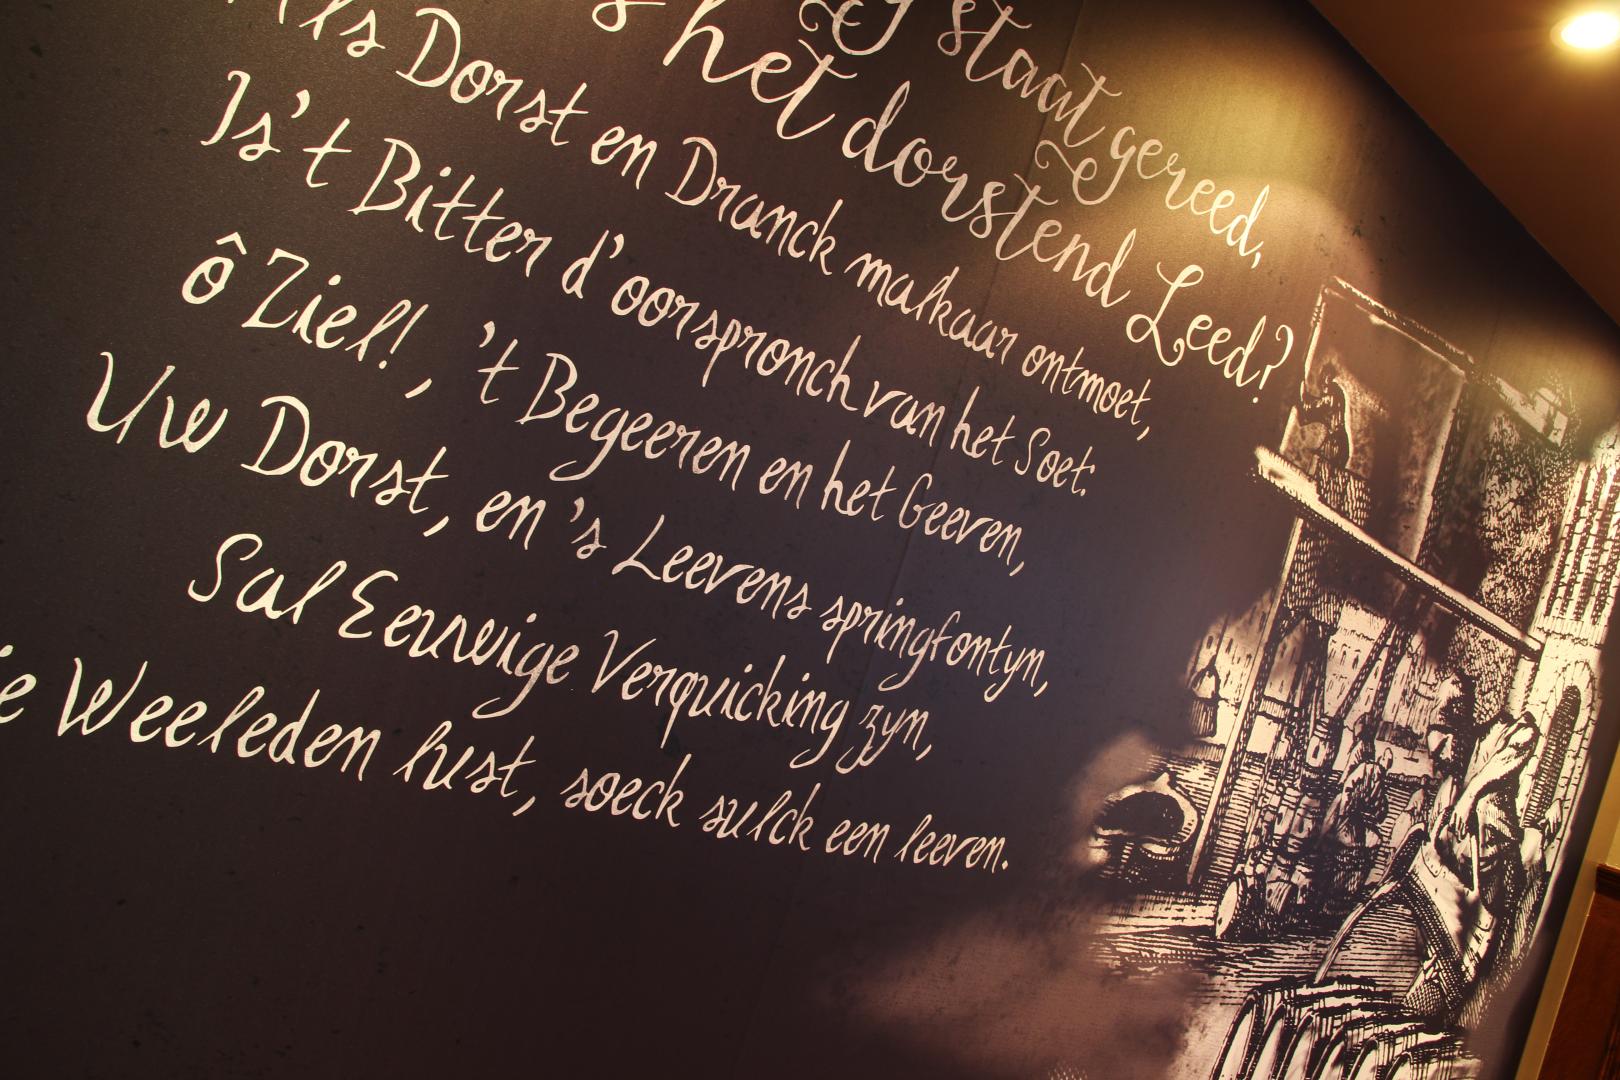 staat gereed,
het dorstend Leed?
Als Dorst en Dranck malkaar ontmoet,
Is't Bitter d'oorspronch van het Soet:
ô Ziel!, 't Begeeren en het Geeven,
Uw Dorst, en 's Leevens springfontyn,
Sal Eeuwige Verquicking zyn,
Weeleden lust, soeck sulck een leeven.